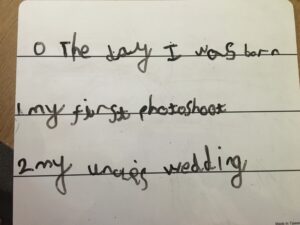 0 The day I was born
1 my first photoshoot
2 my uncles wedding